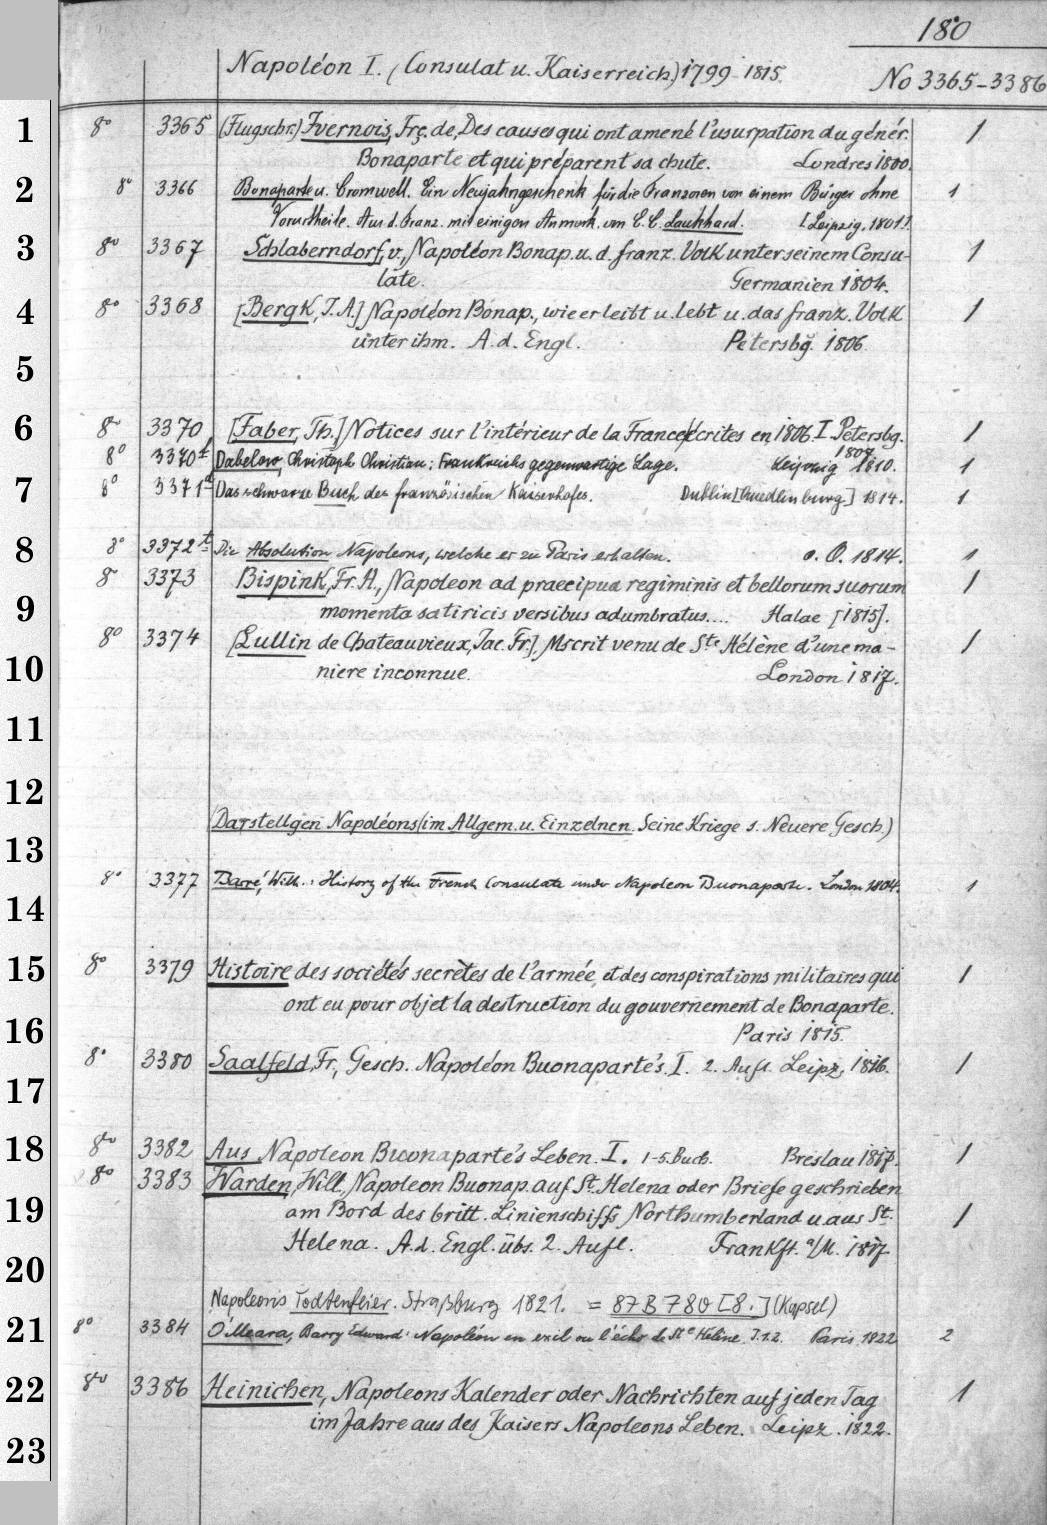 180
Napoléon I. (Consulat u. Kaiserreich.) 1799-1815.
No 3365-3386
1
8º 3365 (Flugschr.) Ivernois, Frç. de, Des causes qui ont amené l'usurpation du génér. 1
Bonaparte et qui préparent sa chute. Londres 1800.
2
8º 3366 Bonaparte u. Cromwell. Ein Neujahrsgeschenk für die Franzosen von einem Bürger ohne 1
Vorurtheile. Aus d. Franz. mit einigen Anmerk. von C. C. Laukhard. [Leipzig. 1801].
3
8º 3367 Schlaberndorf, v., Napoléon Bonap. u. d. franz. Volk unter seinem Consu- 1
late. Germanien 1804.
4
8º 3368 [Bergk, J. A.] Napoléon Bonap., wie er leibt u. lebt u. das franz. Volk 1
unter ihm. A. d. Engl. Petersbg. 1806.
5
6
8º 3370 [Faber, Th.] Notices sur l'intérieur de la France écrites en 1806. I. Petersbg. 1
1807.
8º 3370t Dabelow, Christoph Christian: Frankreichs gegenwärtige Lage. Leipzig 1810. 1
7
8º 3371d Das schwarze Buch des französischen Kaiserhofes. Dublin [Quedlinburg] 1814. 1
8
8º 3372t Die Absolution Napoleons, welche er zu Paris erhalten. o. O. 1814. 1
8º 3373 Bispink, Fr. A., Napoleon ad praecipua regiminis et bellorum suorum 1
9
momenta satiricis versibus adumbratus.... Halae [1815].
8º 3374 [Lullin de Chateauvieux, Jac. Fr.], Mscrit venu de Ste Hélène d'une ma- 1
10
niere inconnue. London 1817.
11
12
(Darstellgen Napoléons (im Allgem. u. Einzelnen. Seine Kriege s. Neuere Gesch.)
13
8º 3377 Barré, Will.: History of the French Consulate under Napoleon Buonaparte. London 1804. 1
14
15
8º 3379 Histoire des sociétés secrètes de l'armée, et des conspirations militaires qui 1
ont eu pour objet la destruction du gouvernement de Bonaparte.
16
Paris 1815.
8º 3380 Saalfeld, Fr., Gesch. Napoléon Buonaparté's. I. 2. Aufl. Leipz. 1816. 1
17
18
8vo 3382 Aus Napoleon Buonaparté's Leben. I. 1-5. Buch. Breslau 1817. 1
8º 3383 Warden, Will., Napoleon Buonap. auf St. Helena oder Briefe geschrieben
19
am Bord des britt. Linienschiffs Northumberland u. aus St. 1
Helena. A. d. Engl. übs. 2. Aufl. Frankft. a/M. 1817
20
Napoleons Todtenfeier. Straßburg 1821. = 87 B 780 [8.] (Kapsel)
21
8º 3384 O'Meara, Barry Edward: Napoléon en exil ou l'écho de Ste Hélène. T. 1. 2. Paris 1822 2
22
8vo 3386 Heinichen, Napoleons Kalender oder Nachrichten auf jeden Tag 1
im Jahre aus des Kaisers Napoleons Leben. Leipz. 1822.
23